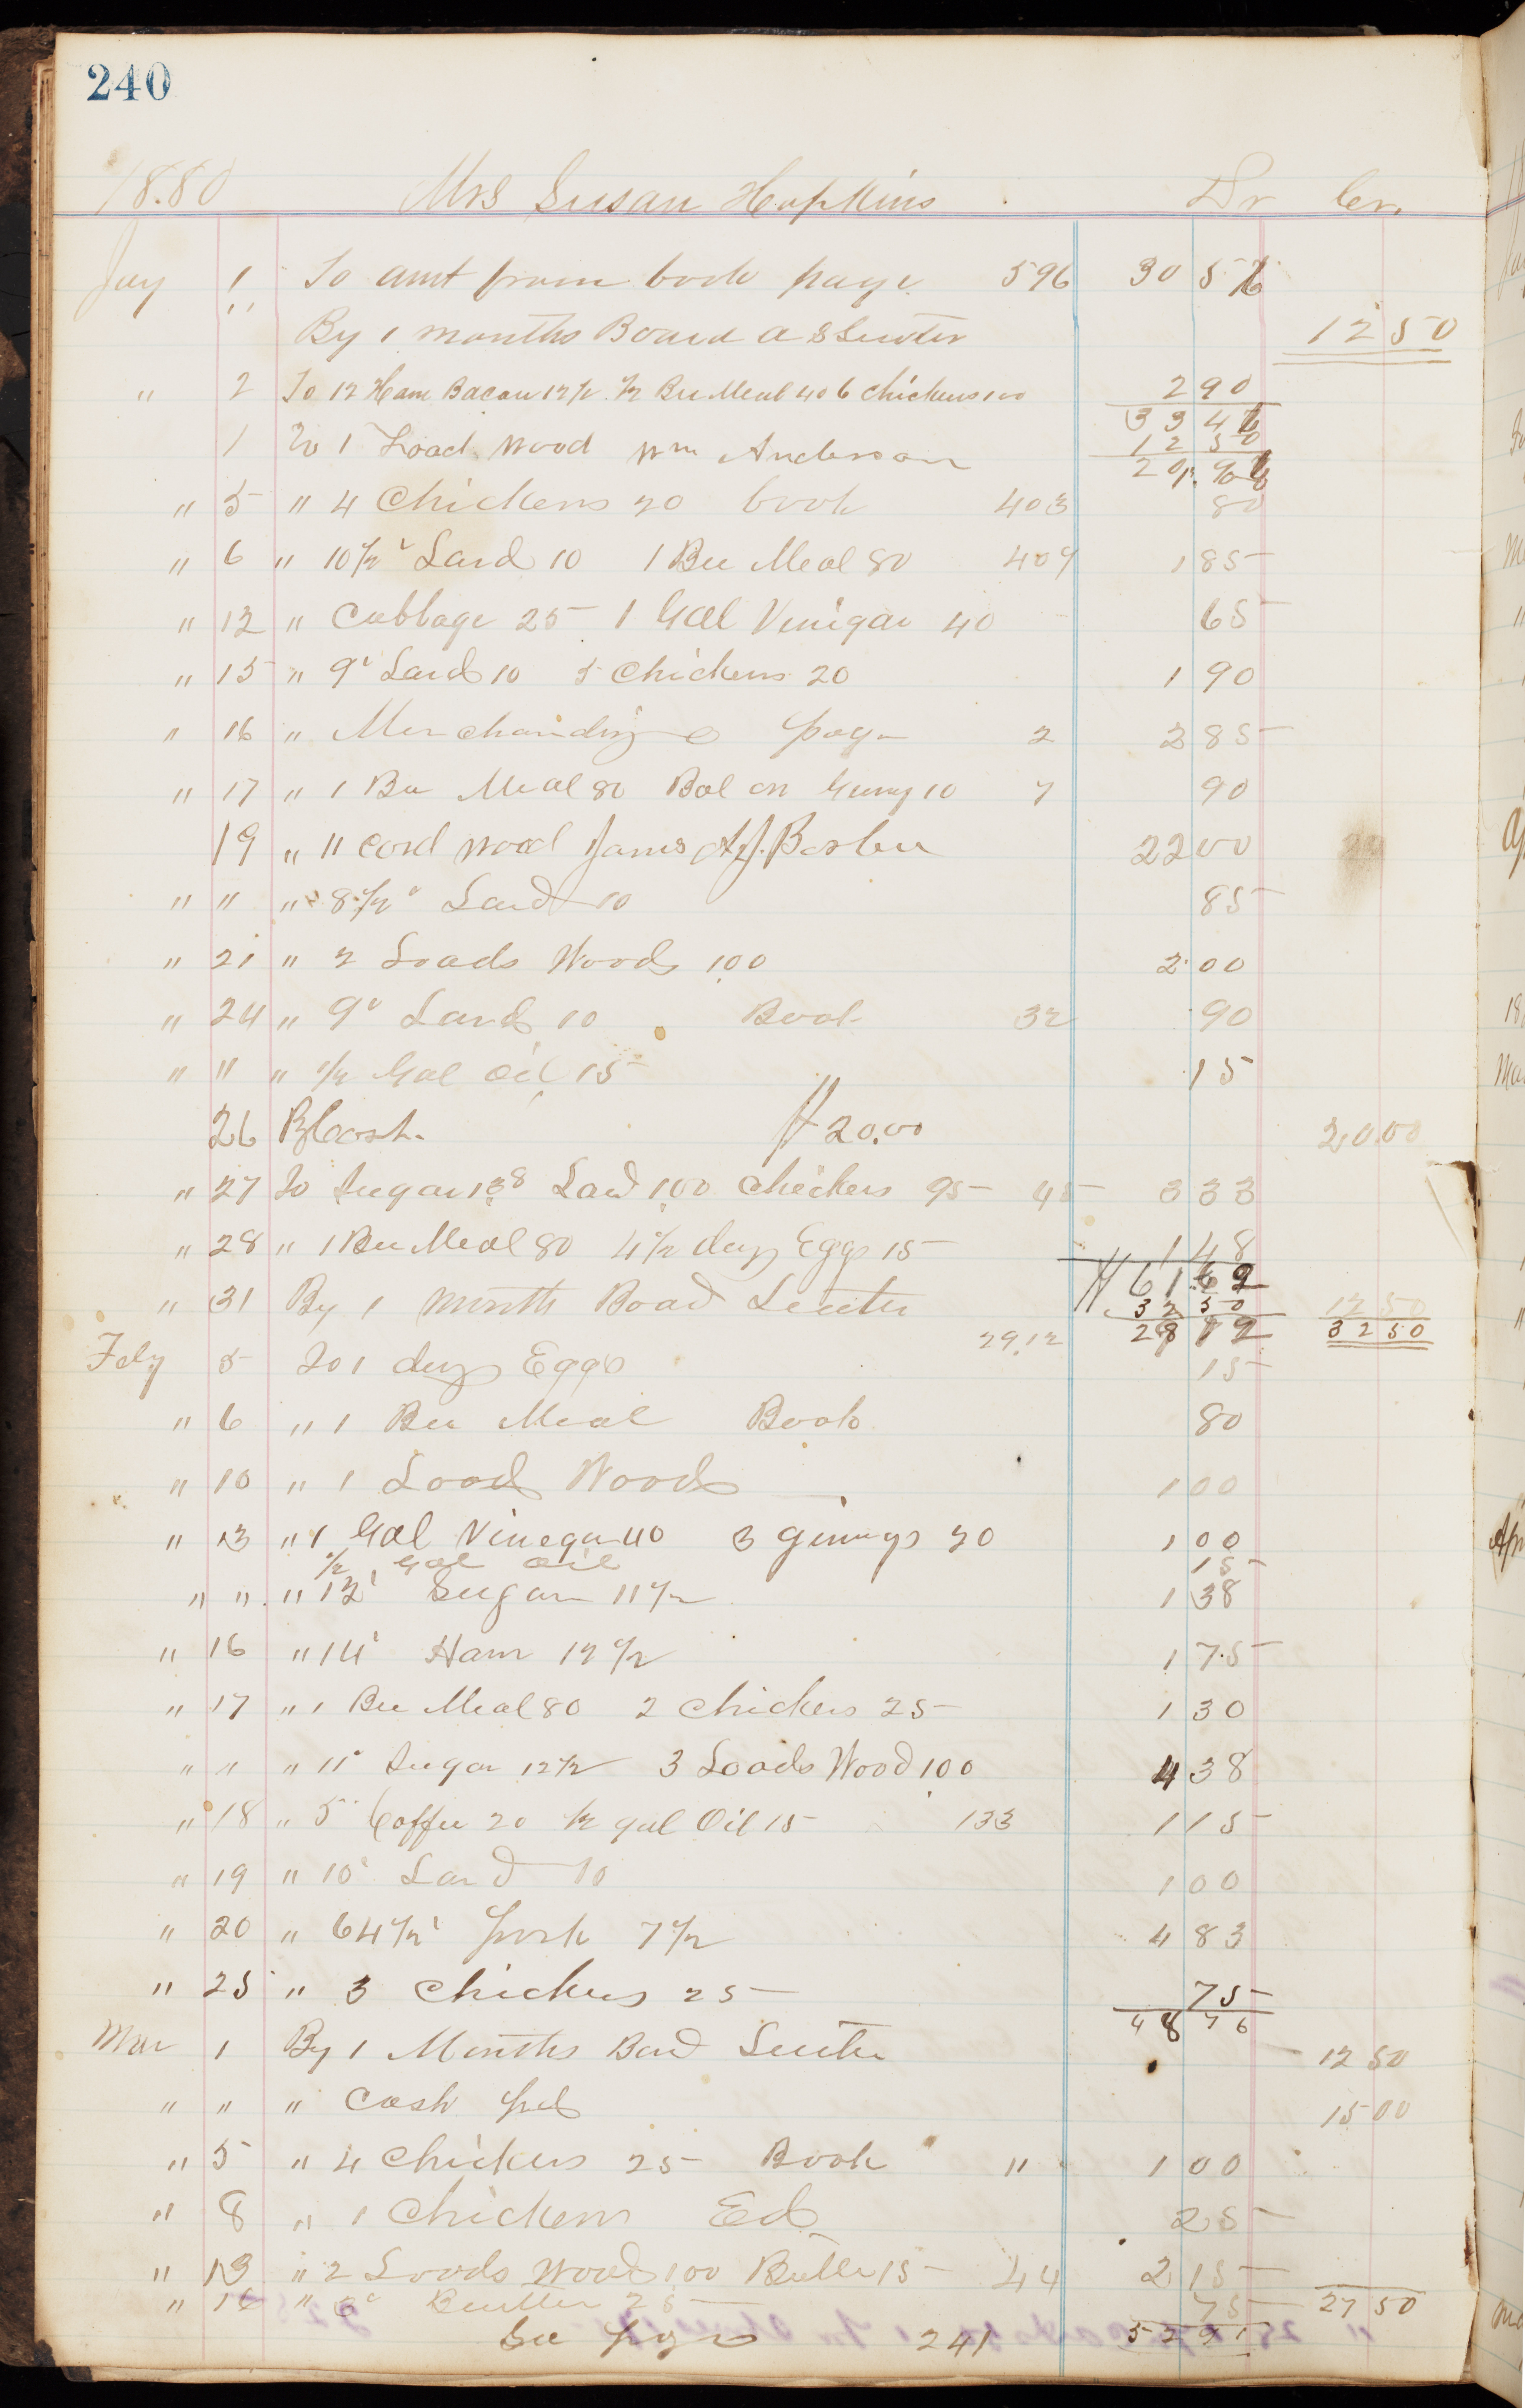 240
18.80 Mrs Susan Hopkins Dr Cr.
Jay 1 To amt from book page 596 30 56
" By 1 months Board A S Senter 12 50
" 2 To 12 Ham Bacon 12 1/2 1/2 Bu Meal 40 6 chickens 100 2 90
33 46
1 To 1 Load Wood Wm Anderson 12 50
20 96
" 5 " 4 Chickens 20 book 403 80
" 6 " 10 1/2 Lard 10 1 Bu Meal 80 409 1 85
" 12 " Cabbage 25 1 Gal Vinigar 40 65
" 15 " 9 Lard 10 5 Chickens 20 1 90
" 16 " Merchandize page 2 2 85
" 17 " 1 Bu Meal 80 Bal on 10 7 90
19 " 11 Cord Wood James A.J. 22 00
" " " 8 1/2 Lard 10 85
" 21 " 2 Loads Wood 100 2 00
" 24 " 9 Lard 10 Book 32 90
" " " 1/2 Gal Oil 15 15
26 By Cash. $20.00 20.00
" 27 To Sugar 138 Lard 100 Chickens 95 45 3 33
" 28 " 1 Bu Meal 80 4 1/2 duz Eggs 15 1 48
61 62
" 31 By 1 month Board Senter 32 50 12 50
29.12 28 12 32 50
Feby 5 To 1 duz Eggs 15
" 6 " 1 Bu Meal Book 80
" 10 " 1 Load Wood 1 00
" 13 " 1 Gal Vinegar 40 3 20 1 00
1/2 Gal Oil 15
" " " 12 Sugar 11 1/2 1 38
" 16 " 14 Ham 12 1/2 1 75
" 17 " 1 Bu Meal 80 2 Chickens 25 1 30
" " " 11 Sugar 12 1/2 3 Loads Wood 100 4 38
" 18 " 5 Coffee 20 1/2 gal Oil 15 133 1 15
" 19 " 10 Lard 10 1 00
" 20 " 64 1/2 pork 7 1/2 4 83
" 25 " 3 Chickens 25 75
48 76
Mar 1 By 1 Months Bord Senter 12 50
" " " Cash pd 15 00
" 5 " 4 Chickens 25 Book " 1 00
" 8 " 1 Chickens Ed 25
" 13 " 2 Loads Wood 100 Butter 15 44 2 15
" 16 " 3 Butter 25 75 27 50
See page 241 52 91